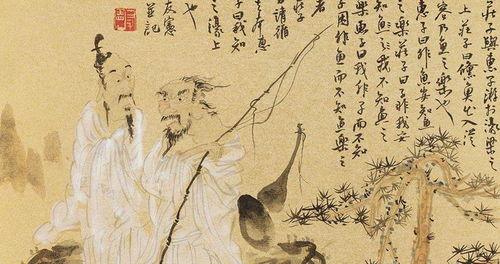 莊子與惠子游於濠梁之
上莊子曰儵魚出入從
容乃魚之樂也
惠子曰非魚安知魚
之樂莊子曰子非我安
知我不知魚之
樂惠子曰我非子而不知
子固非魚而不知魚樂之
者
莊子
請循
曰我知
之濠上
也
友憲
並記